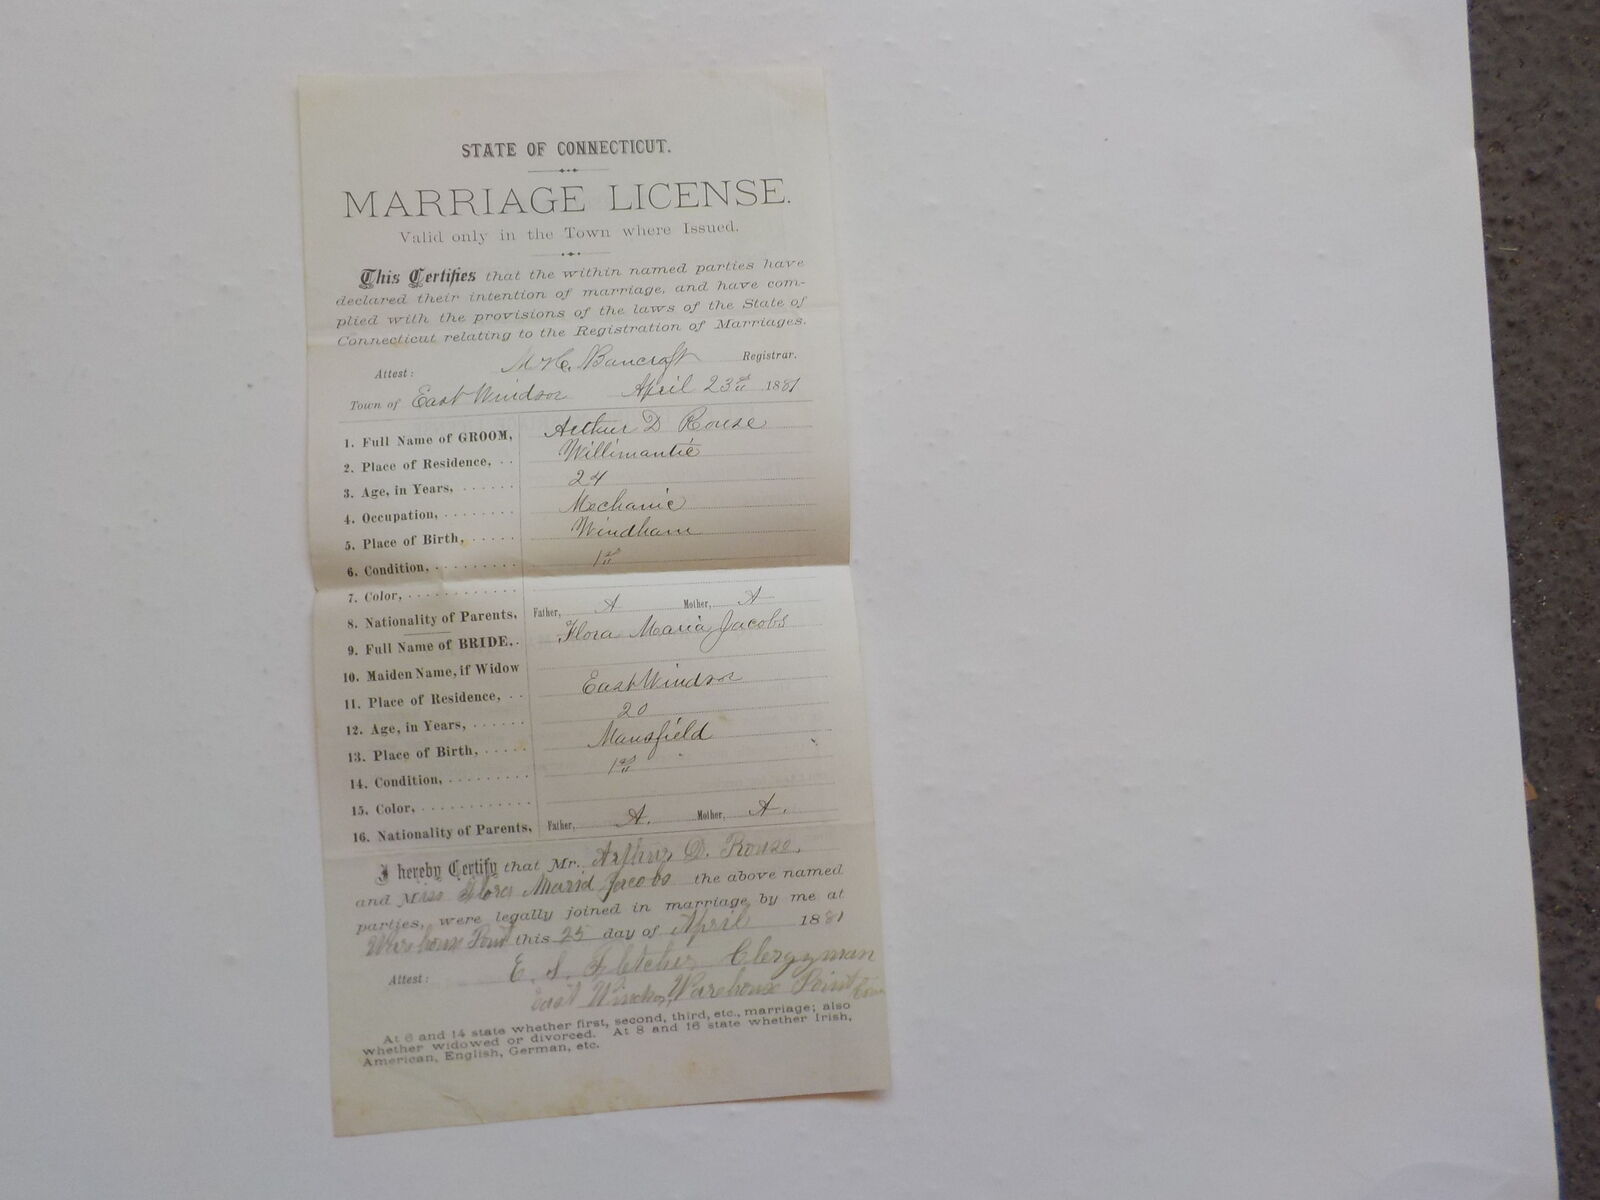 STATE OF CONNECTICUT.
MARRIAGE LICENSE.
Valid only in the Town where Issued.
This Certifies that the within named parties have
declared their intention of marriage, and have com-
plied with the provisions of the laws of the State of
Connecticut relating to the Registration of Marriages.
Attest: Bancroft Registrar.
Town of East Windsor April 23rd 1881
1. Full Name of GROOM, Arthur D Rouse
2. Place of Residence, Willimantic
3. Age, in Years, 24
4. Occupation, Mechanic
5. Place of Birth, Windham
6. Condition, 1st
7. Color,
8. Nationality of Parents, Father, A Mother, A
9. Full Name of BRIDE, Flora Maria Jacobs
10. Maiden Name, if Widow
11. Place of Residence, East Windsor
12. Age, in Years, 20
13. Place of Birth, Mansfield
14. Condition, 1st
15. Color,
16. Nationality of Parents, Father, A. Mother, A.
I hereby Certify that Mr. Arthur D. Rouse.
and Miss Flora Maria Jacobs the above named
parties, were legally joined in marriage by me at
Warehouse Point this 25 day of April 1881
Attest: E. S. Fletcher Clergyman
East Windsor, Warehouse Point Conn
At 6 and 14 state whether first, second, third, etc., marriage; also
whether widowed or divorced. At 8 and 16 state whether Irish,
American, English, German, etc.